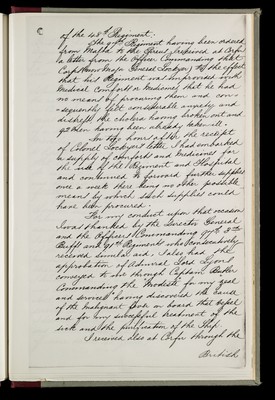 of the 48th Regiment.
The 9th Regiment having been ordered
from Malta to the Crimea, I received at Corfu
a letter from the Officer Commanding that
Corps (now Major General Lockyer) to the effect
that his Regiment was unprovided with
Medical Comforts or Medicines, that he had
no means of procuring them and con-
sequently felt considerable anxiety and
distress, the cholera having broken out and
men having been already taken ill.
In two hours after the receipt
of Colonel Lockyers letter I had embarked
a supply of comforts and medicines for
the use of the Regiment and Hospital
and continued to forward further supplies
once a week there being no other possible
means by which such supplies could
have been procured.
For my conduct upon that occasion
I was thanked by the Director General
and the Officers Commanding 97th 3rd
Buffs and 91st Regiments who consecutively
received similar aid. I also had the
approbation of Admiral Lord Lyons
conveyed to me through Captain
Commanding the Modeste for my zeal
and services having discovered the cause
of the malignant fever on board that vessel
and for my successful treatment of the
sick and the purification of the Ship.
I received also at Corfu through the
British